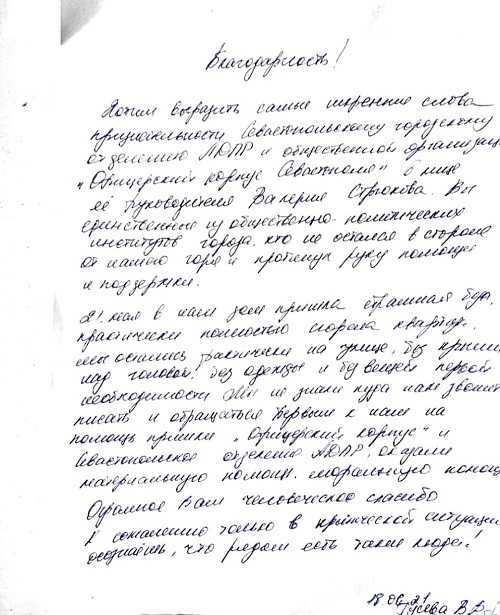 Благодарность!
Хотим выразить самые искренние слова
признательности Севастопольскому городскому
отделению ЛДПР и общественной организации
"Офицерский корпус Севастополя" в лице
её руководителя Валерия Вы
единственные из общественно-политических
институтов города, кто не остался в стороне
от нашего горя и протянул руку помощи
и поддержки.
21 мая в наш дом пришла страшная беда
практически полностью сгорела квартира.
Мы остались фактически на улице, без крыши
над головой, без одежды и без вещей первой
необходимости Мы не знали куда нам звонить
писать и обращаться Первыми к нам на
помощь пришли "Офицерский корпус" и
Севастопольское отделение ЛДПР, оказали
материальную помощь, моральную помощь
Огромное Вам человеческое спасибо
К сожалению только в критической ситуации
осознаёшь, что рядом есть такие люди!
18.06.21
Гусева В.